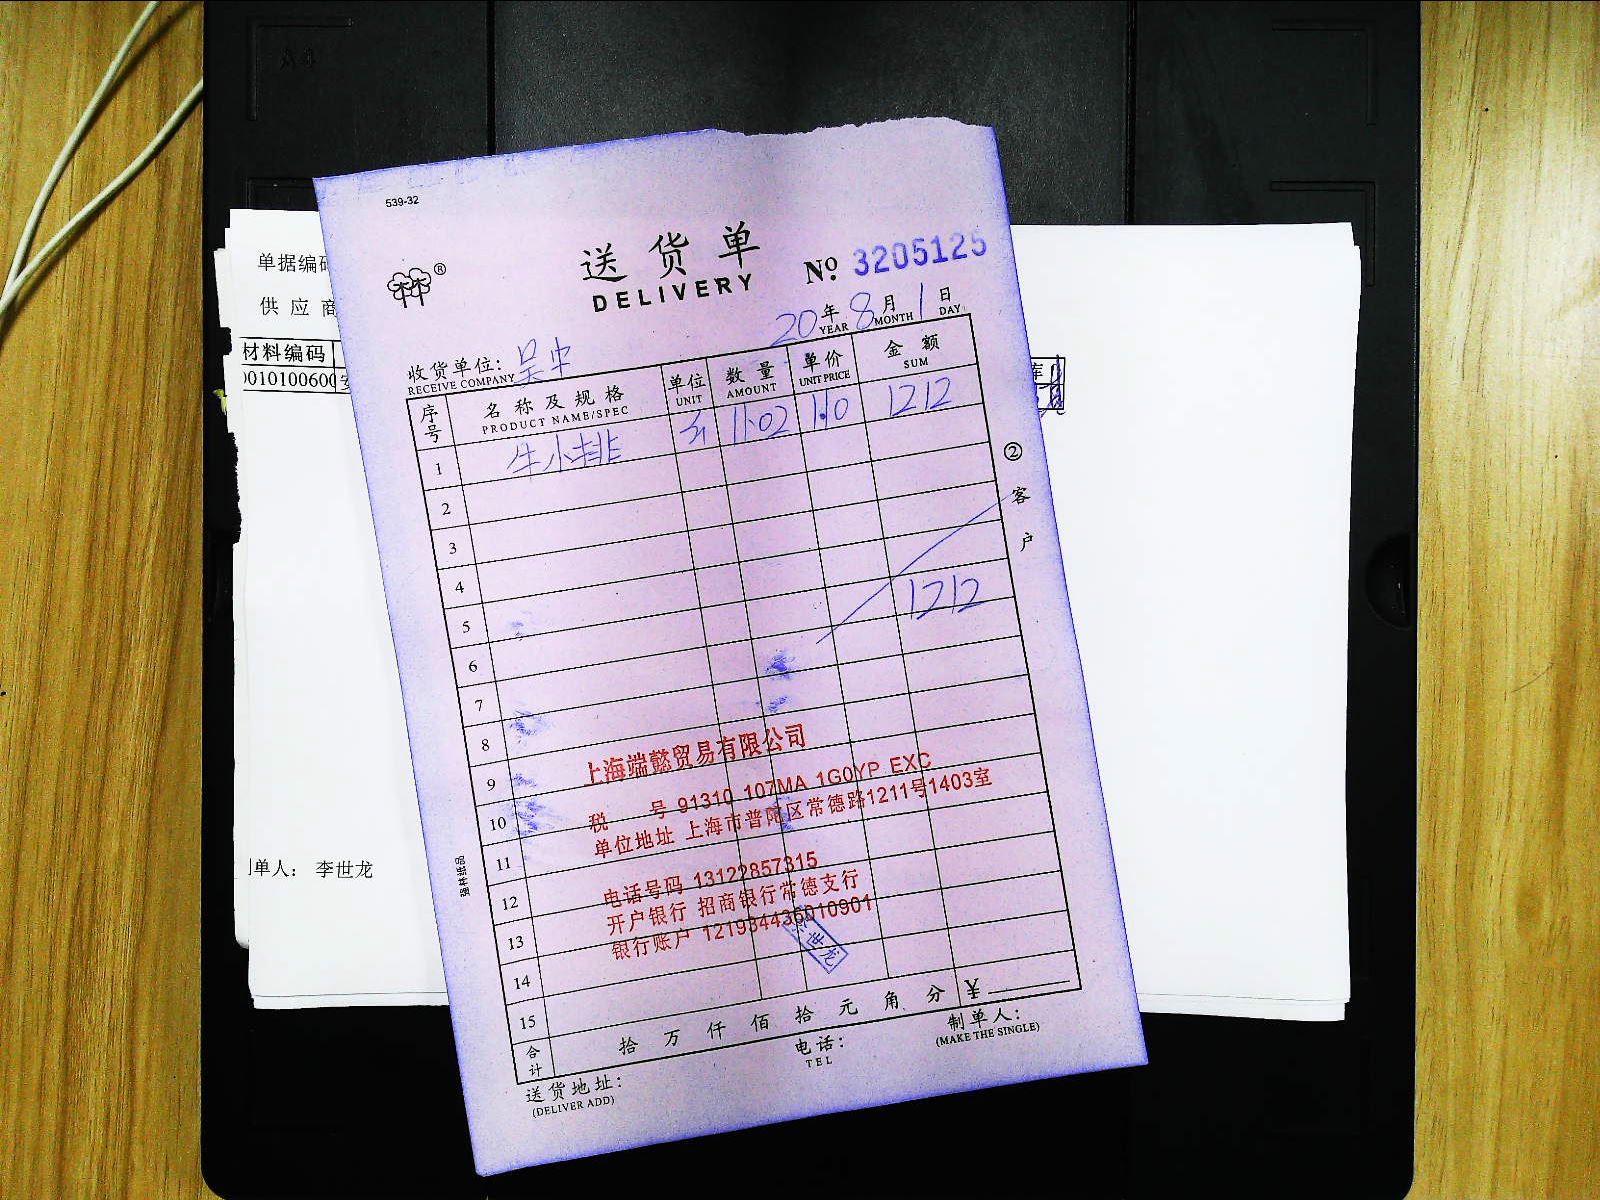 539-32
®
送货单
DELIVERY
№ 3205125
20年 8月 1日
YEAR MONTH DAY
收货单位：吴中
RECEIVE COMPANY
序号 名称及规格 单位 数量 单价 金额
PRODUCT NAME/SPEC UNIT AMOUNT UNIT PRICE SUM
1 牛小排 斤 11.02 110 1212
2
3
4
5 1212
6
7
8
9
10
11
12
13
14
15
上海端懿贸易有限公司
税 号 91310 107MA 1G0YP EXC
单位地址 上海市普陀区常德路1211号1403室
电话号码 13122857315
开户银行 招商银行常德支行
银行账户 121934436010901
李世龙
合计 拾 万 仟 佰 拾 元 角 分 ¥
送货地址：
(DELIVER ADD)
电话：
TEL
制单人：
(MAKE THE SINGLE)
②客户
强林纸品
单据编码
供应商
材料编码
01010060
库
制单人： 李世龙
A4